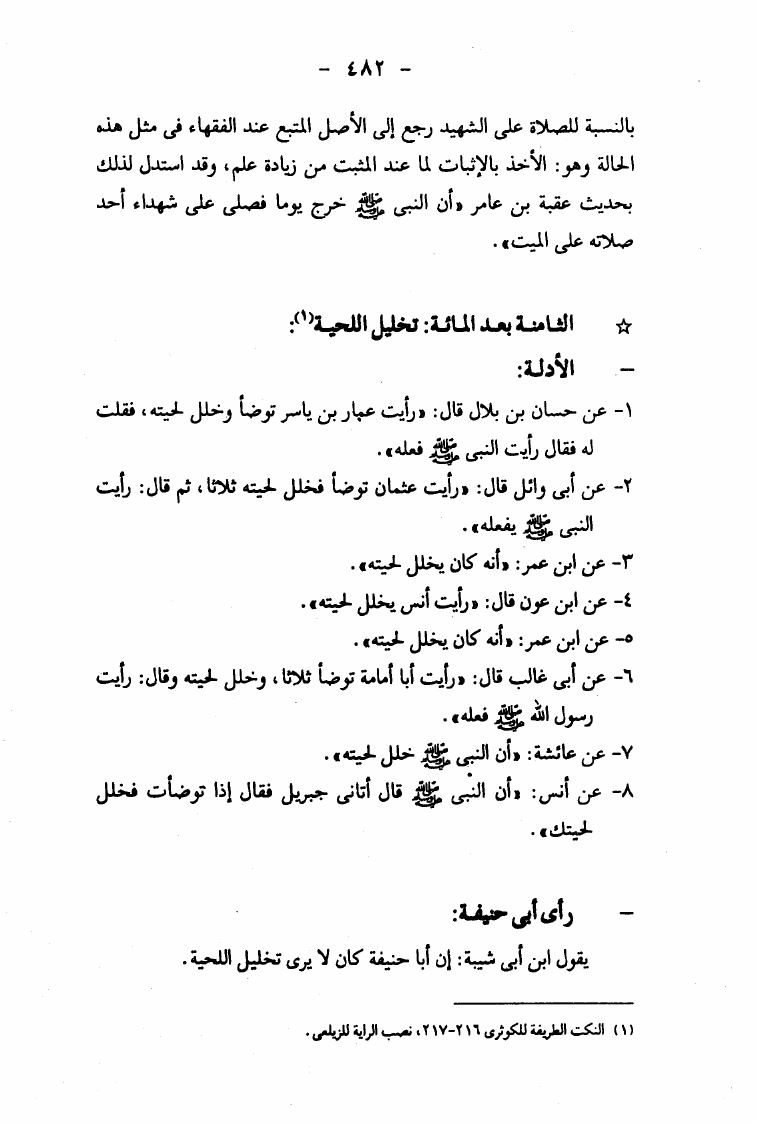 - ٤٨٢ -
بالنسبة للصلاة على الشهيد رجع إلى الأصل المتبع عند الفقهاء فى مثل هذه
الحالة وهو: الأخذ بالإثبات لما عند المثبت من زيادة علم، وقد استدل لذلك
بحديث عقبة بن عامر «أن النبى ﷺ خرج يوما فصلى على شهداء أحد
صلاته على الميت».
☆ الثامنة بعد المائة: تخليل اللحية(١):
– الأدلة:
١- عن حسان بن بلال قال: «رأيت عمار بن ياسر توضأ وخلل لحيته، فقلت
له فقال رأيت النبى ﷺ فعله».
٢- عن أبى وائل قال: «رأيت عثمان توضأ فخلل لحيته ثلاثا، ثم قال: رأيت
النبى ﷺ يفعله».
٣- عن ابن عمر: «أنه كان يخلل لحيته».
٤- عن ابن عون قال: «رأيت أنس يخلل لحيته».
٥- عن ابن عمر: «أنه كان يخلل لحيته».
٦- عن أبى غالب قال: «رأيت أبا أمامة توضأ ثلاثا، وخلل لحيته وقال: رأيت
رسول الله ﷺ فعله».
٧- عن عائشة: «أن النبى ﷺ خلل لحيته».
٨- عن أنس: «أن النبى ﷺ قال أتانى جبريل فقال إذا توضأت فخلل
لحيتك».
– رأى أبى حنيفة:
يقول ابن أبى شيبة: إن أبا حنيفة كان لا يرى تخليل اللحية.
(١) النكت الطريفة للكوثرى ٢١٦-٢١٧، نصب الراية للزيلعى.